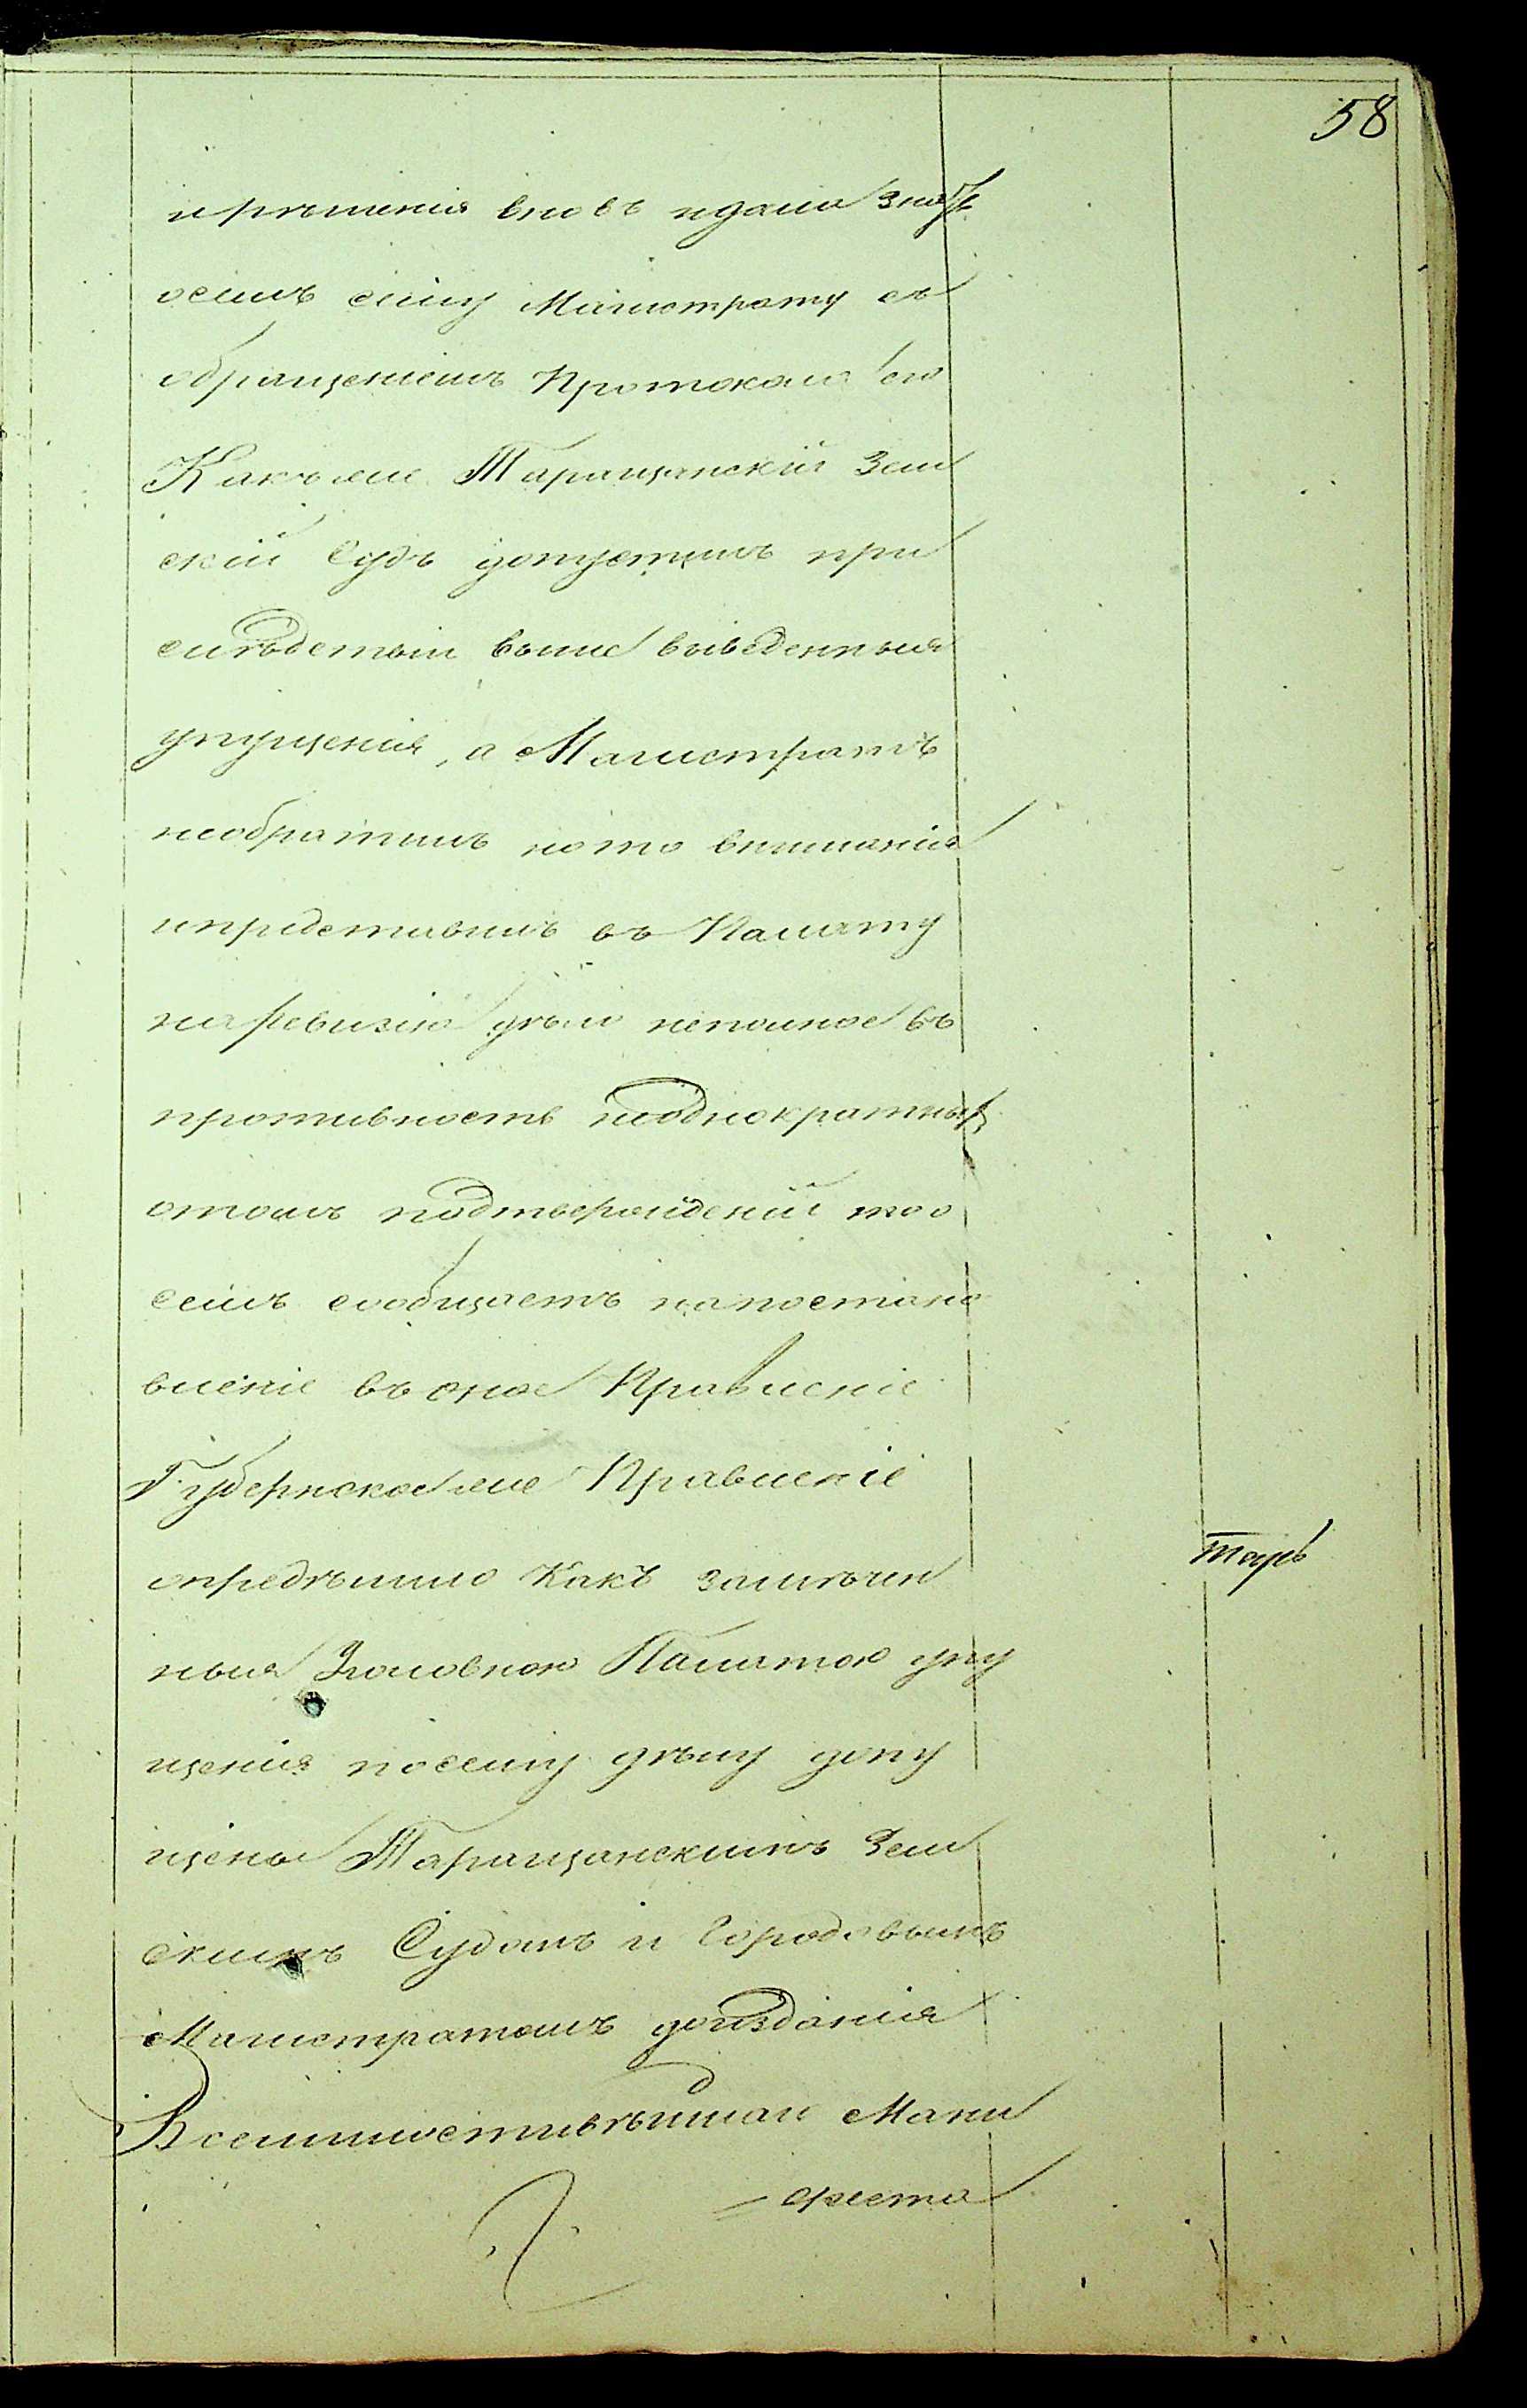 58
и решенія вновь и дала знать
о семъ сему Магистрату съ
обращеніемъ Протокола его
Какъ же Таращанскій Зем
скій Судъ допустилъ при
слѣдствіи выше выведенныя
упущенія, а Магистратъ
необратилъ на то вниманія
и представилъ въ Палату
на ревизію дѣло неполное въ
противность неоднократныхъ
о томъ подтвержденій то о
семъ сообщаетъ на постано
вленіе въ оное Правленіе
Губернское же Правленіе
опредѣлило Какъ замѣчен
ныя Уголовною Палатою упу
щенія по сему дѣлу допу
щены Таращанскимъ Зем
скимъ Судомъ и Городовымъ
Магистратомъ до изданія
Всемилостивѣйшаго Мани
феста